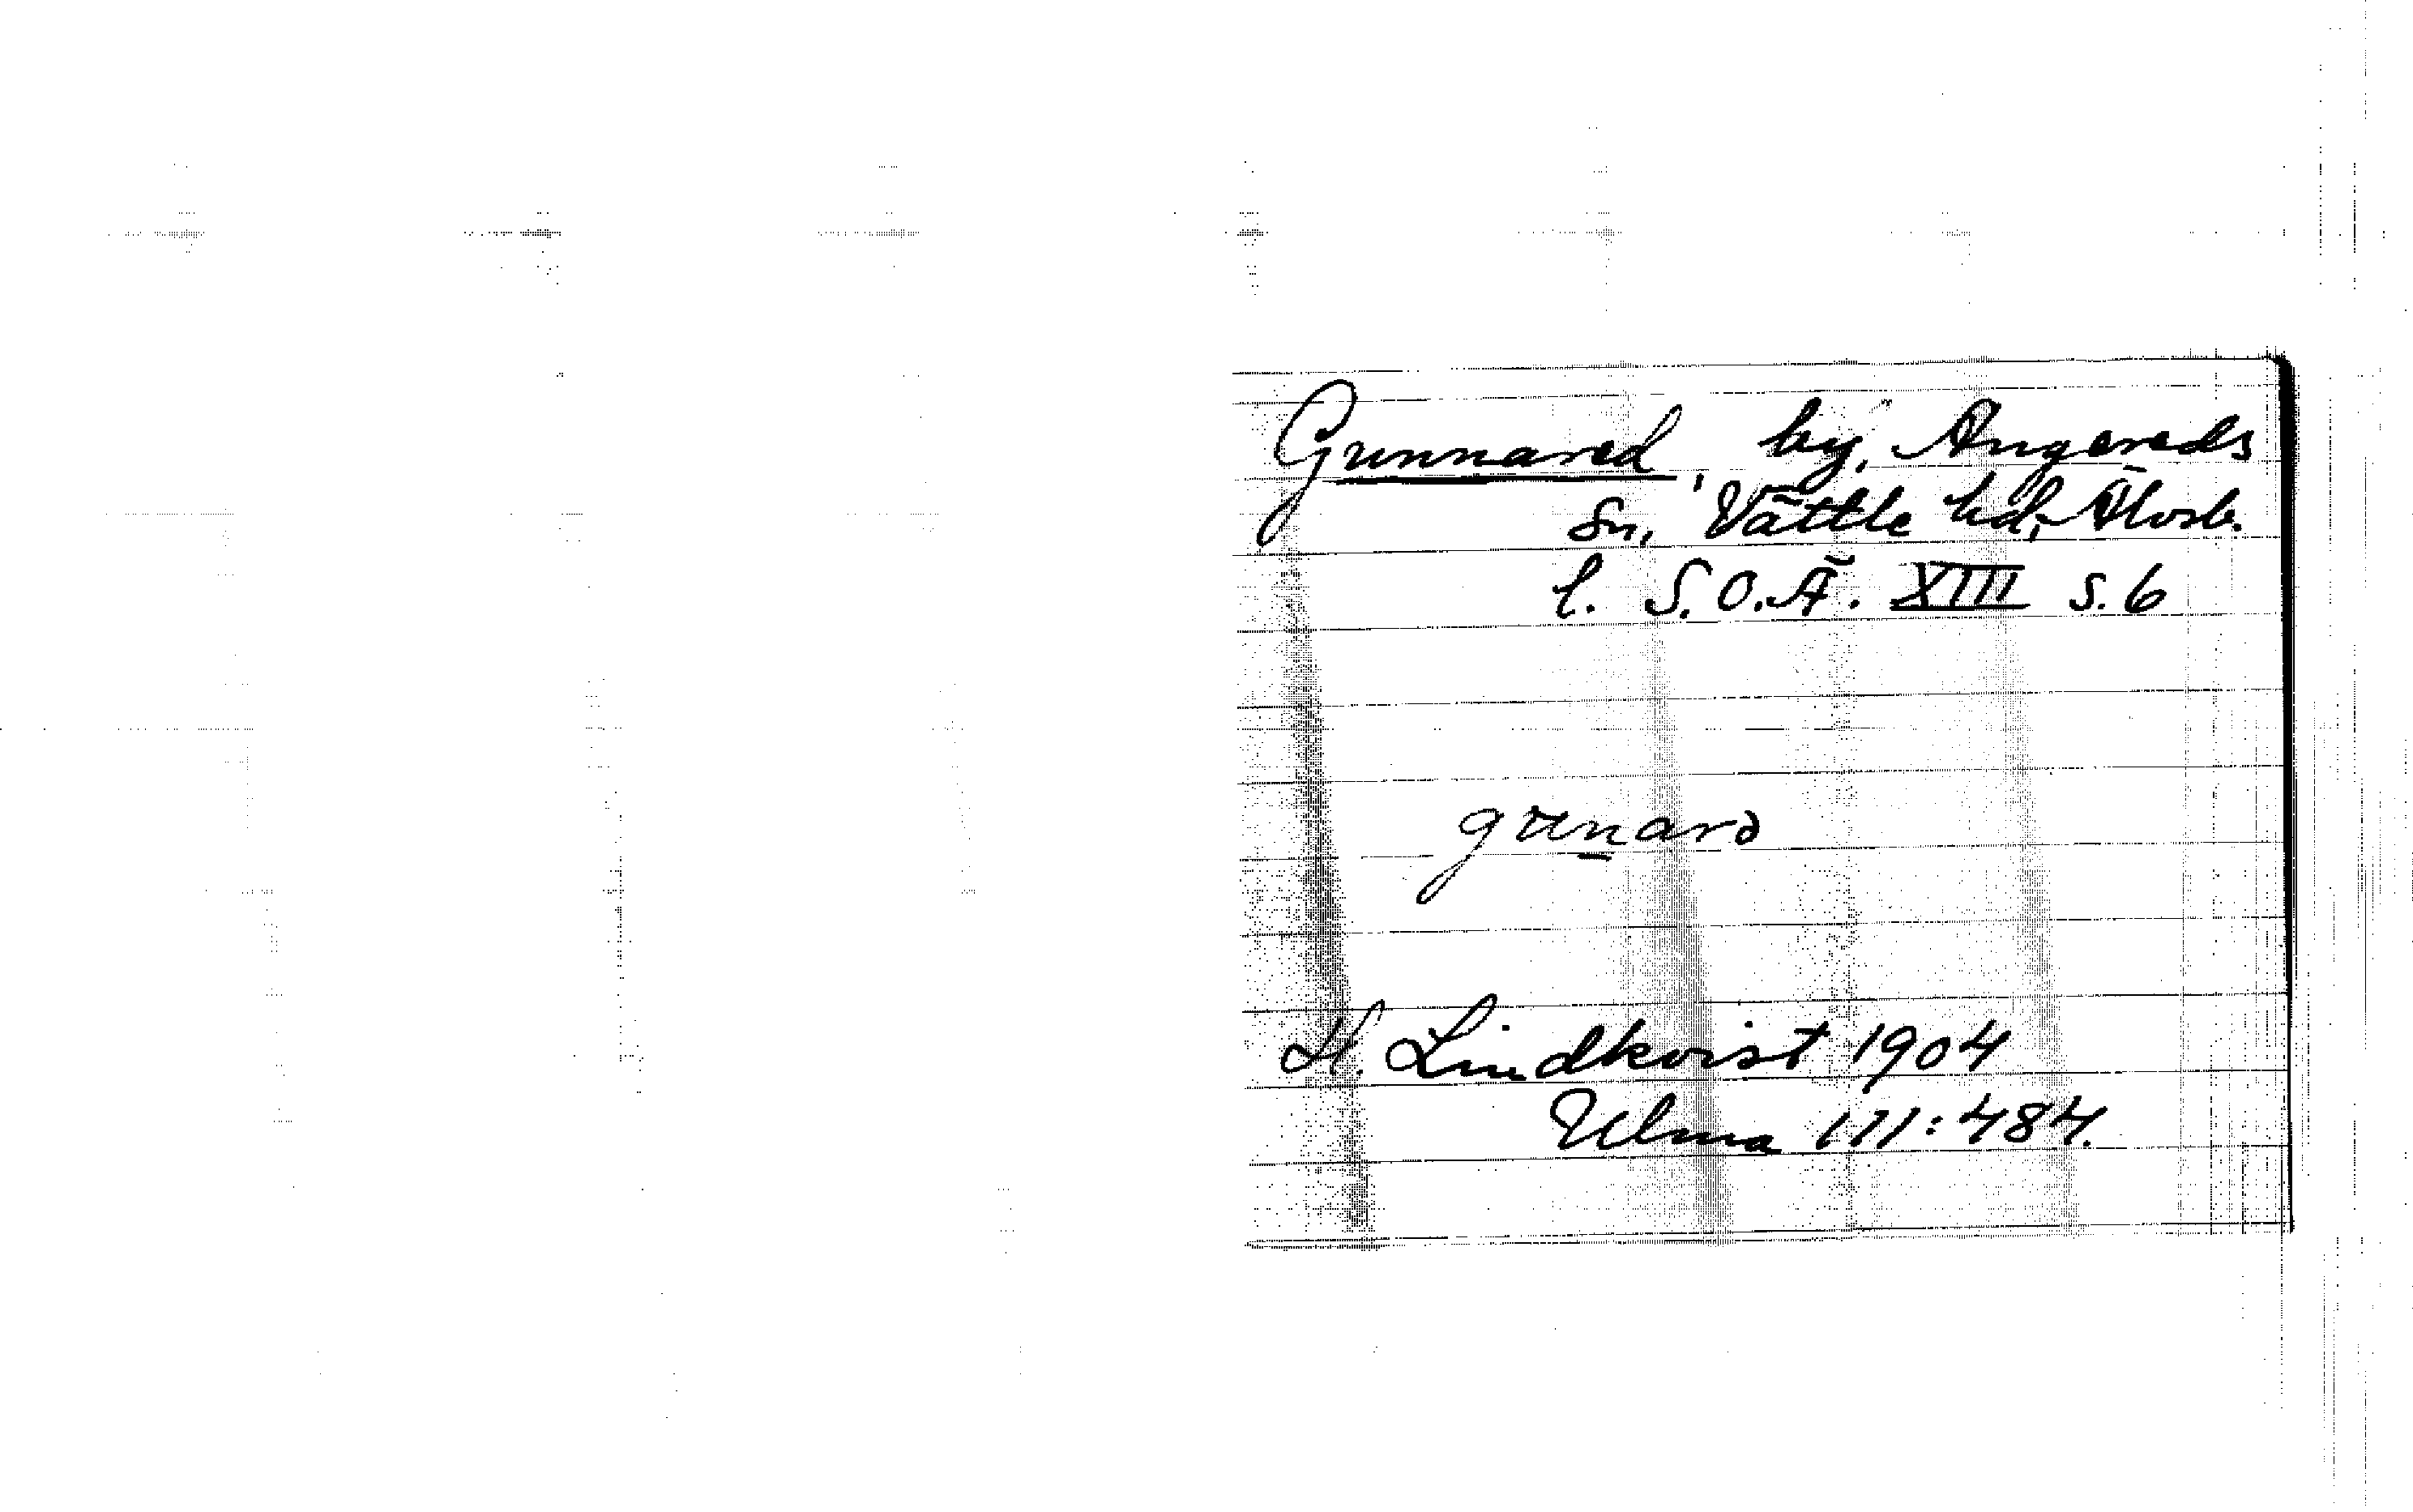 Gunnared, by, Angereds
sn, Vättle hd, Älvsb.
l. S.O.Ä. XIII s. 6
gunarə
H. Lindkvist 1904
Ulma 171:484.